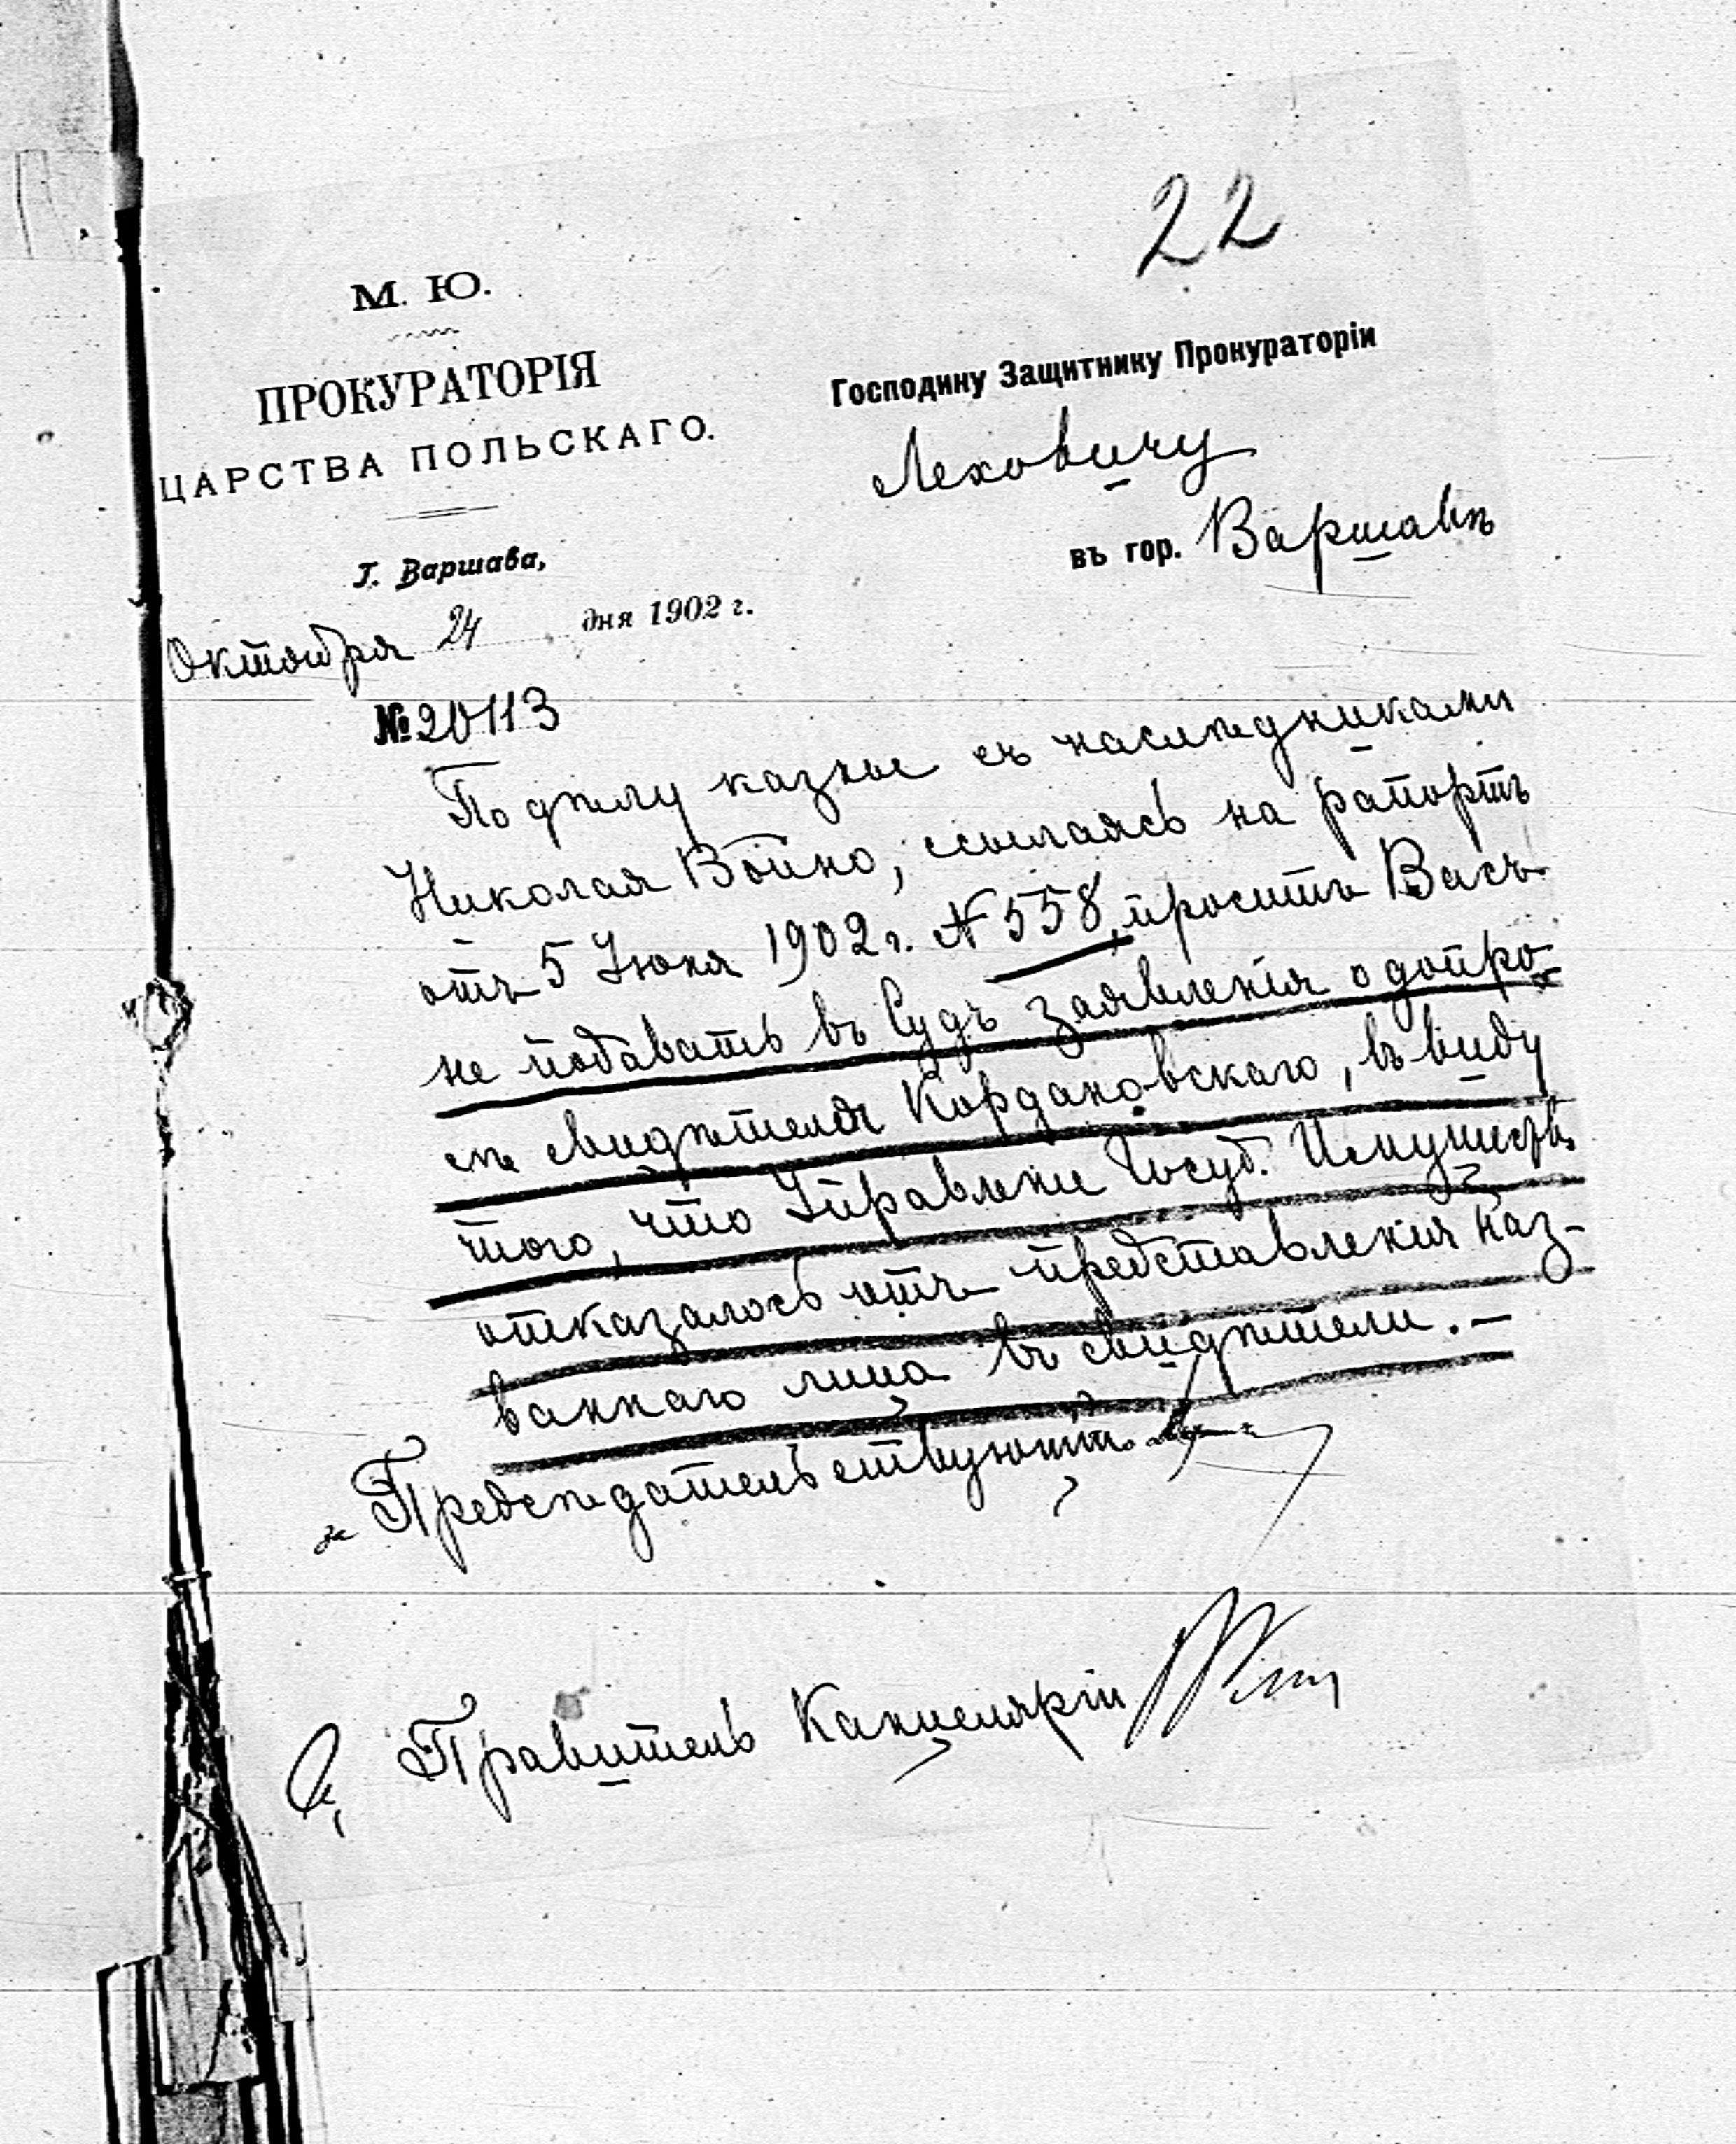 22
М. Ю.
ПРОКУРАТОРІЯ
ЦАРСТВА ПОЛЬСКАГО.
Г. Варшава,
Октября 24 дня 1902 г.
№ 20113
Господину Защитнику Прокураторіи
Леховичу
въ гор. Варшавѣ
По дѣлу казны съ наслѣдниками
Николая Война, ссылаясь на рапортъ
отъ 5 Іюня 1902 г. № 558, проситъ Васъ
не подавать въ Судъ заявленія о допро-
сѣ свидѣтеля Кордановскаго, въ виду
того, что Управленіе Госуд. Имуществ.
отказалось отъ представленія наз-
ваннаго лица въ свидѣтели. —
за Предсѣдательствующаго
Правитель Канцеляріи